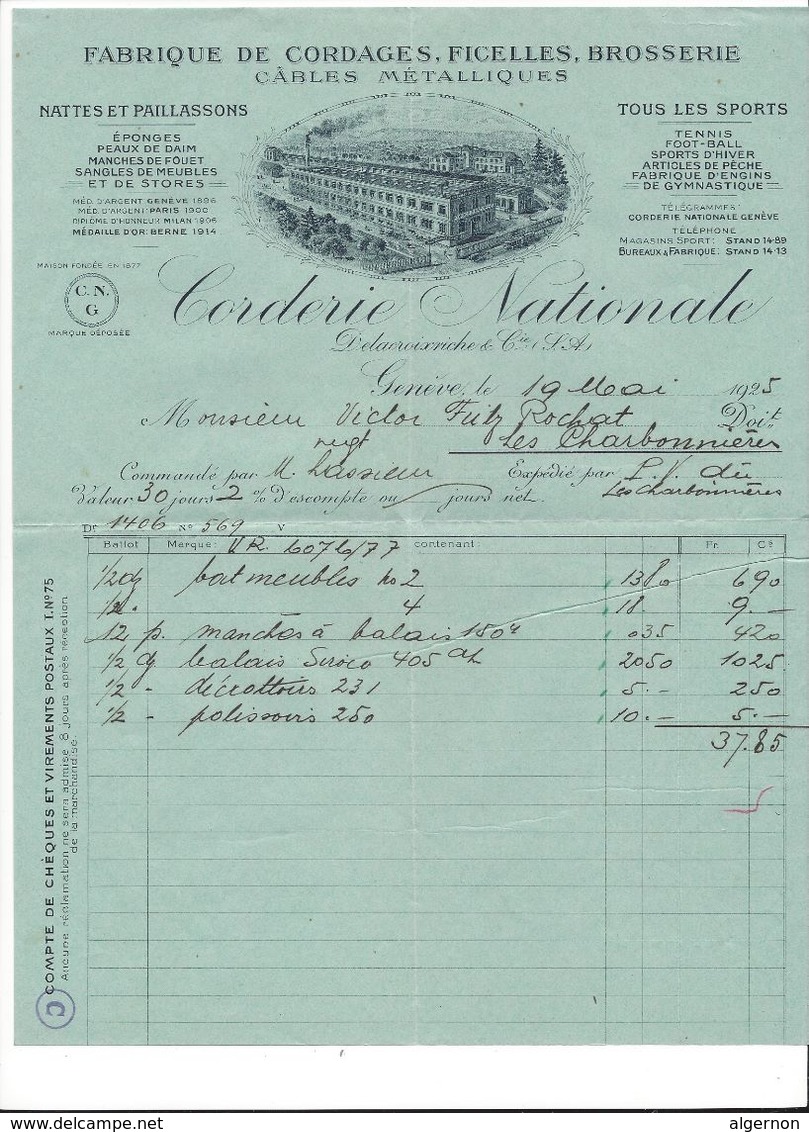 FABRIQUE DE CORDAGES, FICELLES, BROSSERIE
CÂBLES MÉTALLIQUES
NATTES ET PAILLASSONS
ÉPONGES
PEAUX DE DAIM
MANCHES DE FOUET
SANGLES DE MEUBLES
ET DE STORES
MÉD. D'ARGENT GENÈVE 1896
MÉD. D'ARGENT: PARIS 1900
DIPLÔME D'HONNEUR: MILAN 1906
MÉDAILLE D'OR: BERNE 1914
TOUS LES SPORTS
TENNIS
FOOT-BALL
SPORTS D'HIVER
ARTICLES DE PÊCHE
FABRIQUE D'ENGINS
DE GYMNASTIQUE
TÉLÉGRAMMES:
CORDERIE NATIONALE GENÈVE
TÉLÉPHONE
MAGASINS SPORT: STAND 14-89
BUREAUX & FABRIQUE: STAND 14-13
MAISON FONDÉE EN 1877
C. N.
G
MARQUE DÉPOSÉE
Corderie Nationale
Delacroixriche & Cie. (S.A)
Genève, le 19 Mai 1925
Monsieur Victor Fritz Rochat Doit
negt Les Charbonnières
Commandé par M. Lassieur Expédié par P.V. dû
Valeur 30 jours 2 % d'escompte ou jours net. Les Charbonnières
Dr 1406 No 569 V
Ballot Marque: V.R. 6076/77 contenant: Fr. Cs
1/2 dz bat meubles no 2 13 80 6 90
1/2 . 4 18. 9.—
12 p. manches à balais 150 035 4 20
1/2 dz balais Siroco 405 20 50 10 25
1/2 - décrottoirs 231 5.— 2 50
1/2 - polissoirs 250 10.— 5.—
37.85
COMPTE DE CHÈQUES ET VIREMENTS POSTAUX I. No 75
Aucune réclamation ne sera admise 8 jours après réception
de la marchandise.
C
www.delcampe.net
algernon